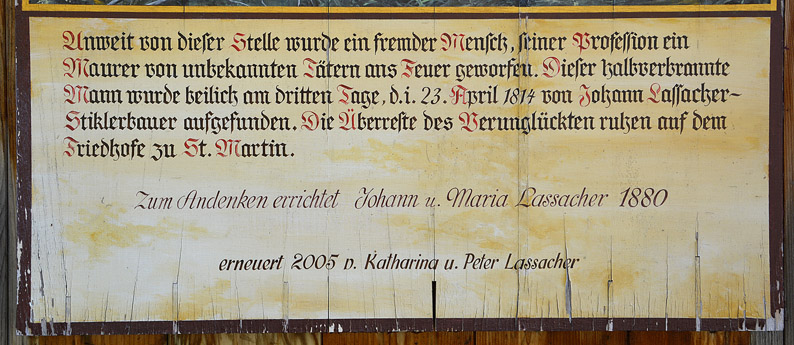 Unweit von dieser Stelle wurde ein fremder Mensch, seiner Profession ein
Maurer von unbekannten Tätern ans Feuer geworfen. Dieser halbverbrannte
Mann wurde beilich am dritten Tage, d.i. 23. April 1814 von Johann Lassacher-
Stiklerbauer aufgefunden. Die Überreste des Verunglückten ruhen auf dem
Friedhofe zu St. Martin.
Zum Andenken errichtet Johann u. Maria Lassacher 1880
erneuert 2005 v. Katharina u. Peter Lassacher